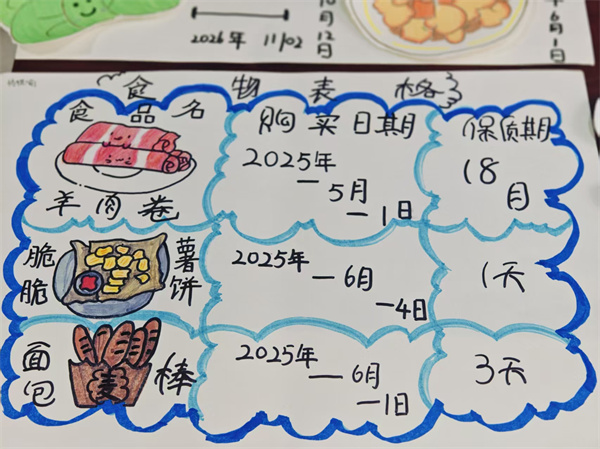 2026年 11/02
10月12日
年6月1日
食物表格
食品名 购买日期 保质期
羊肉卷 2025年—5月—1日 18月
脆脆薯饼 2025年—6月—4日 1天
面包棒 麦 2025年—6月—1日 3天